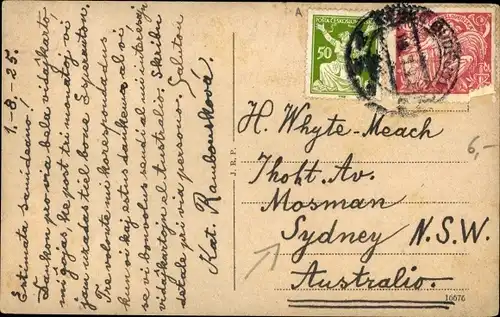 1.-8.-25.
Estimata samideano!
Dankon pro via bela vidajkarto
mi ĝojas, ke post tri monatoj, vi
jam uzadas tiel bone Esperanton.
Tre volonte mi korespondadus
kun vi kaj estus dankema al vi
se vi bonvolus sendi al mi interesajn
vidajkartojn el Australio. Skribu
detale pri via persono. Saluton
Kat. Rambousková.
A
POŠTA ČESKOSLOVENSKÁ
50
J. R. P.
H. Whyte-Meach
Thoht. Av.
Mosman
Sydney N.S.W.
Australio.
6,-
16676